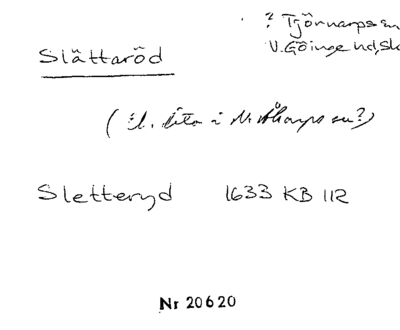 ? Tjörnarps sn
V. Göinge hd, Sk
Slättaröd
(El. lita i N. Åkarps sn?)
Sletteryd 1633 KB 112
Nr 20620